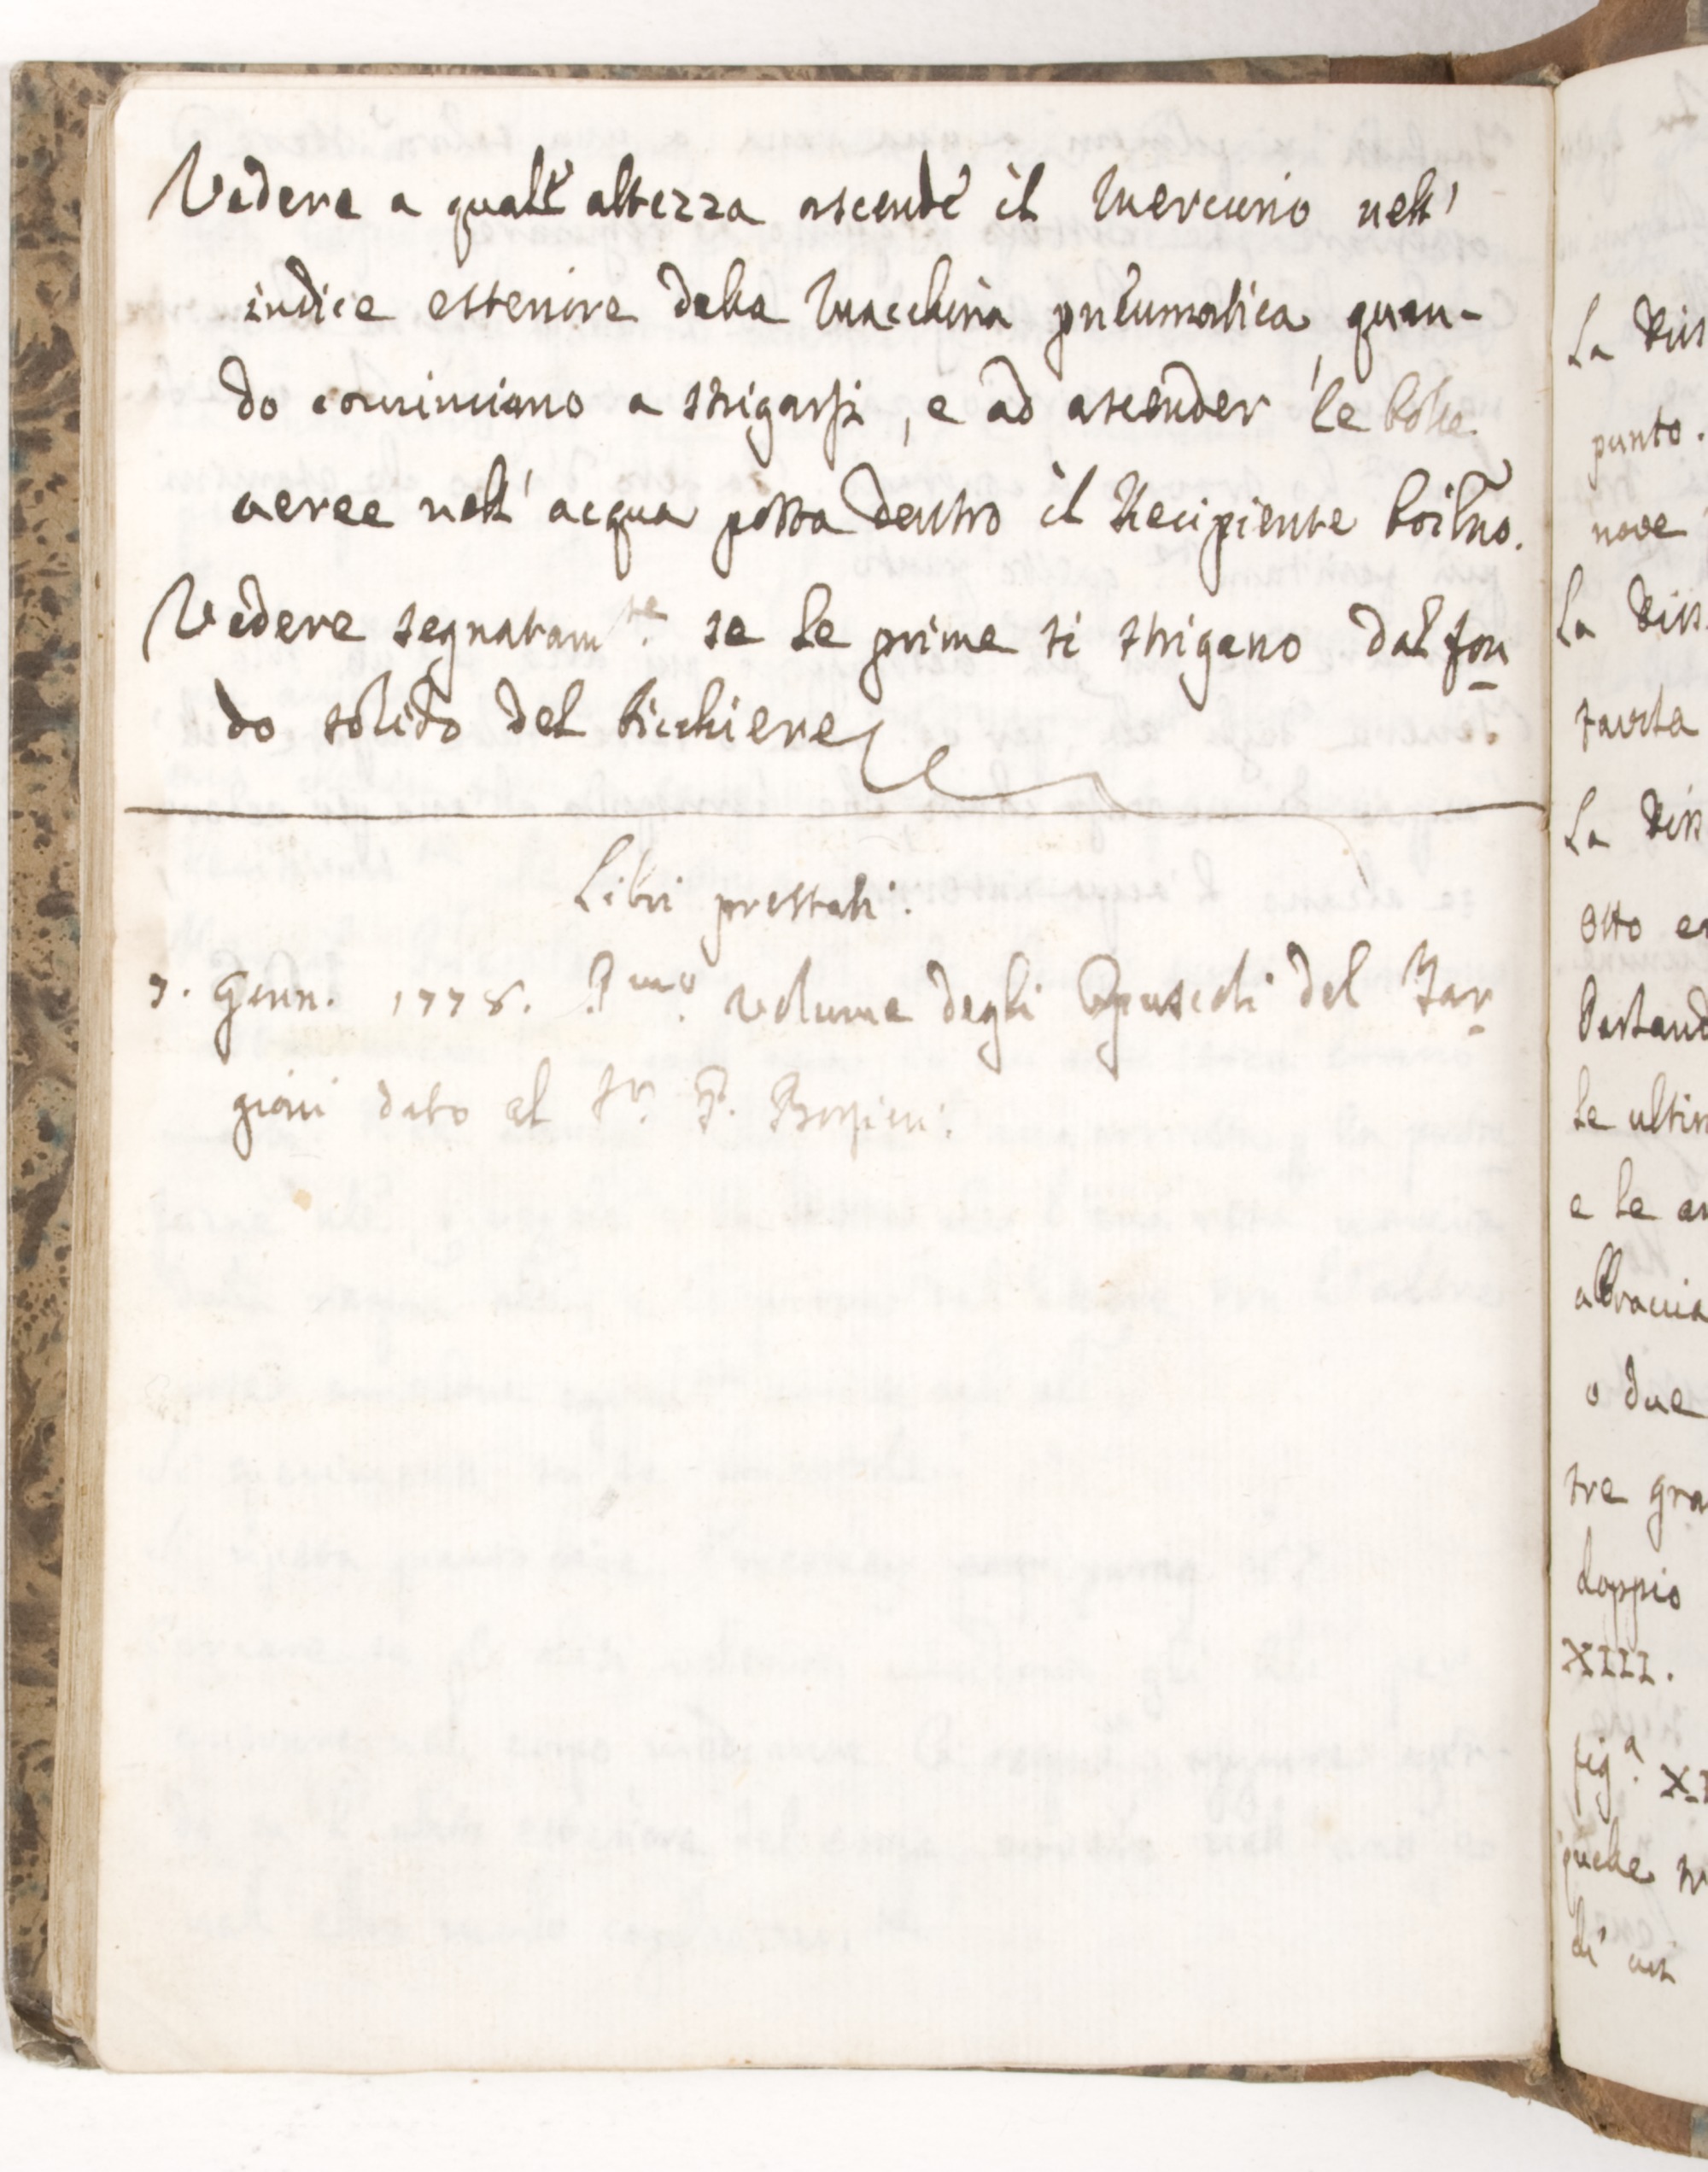 Vedere a qual' altezza ascende il Mercurio nell'
indice esteriore della Macchina pneumatica quan-
do cominciano a strigarsi, e ad ascender le bolle
aeree nell' acqua posta dentro il Recipiente boilño.
Vedere segnatam.te se le prime si strigano dal fon
do solido del bicchiere
Libri prestati.
7. Genn. 1778. P.mo volume degli Opuscoli del Tar
gioni dato al Sr. P.
La
punto.
nove
La
La
otto
le
e le
o due
tre
doppio
XIII.
fig.a